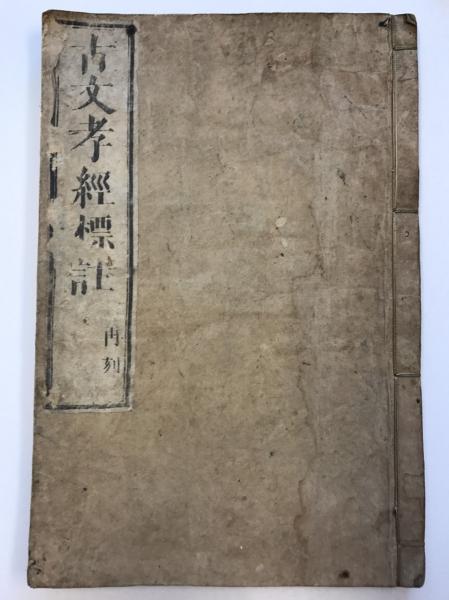 古文孝經標註
再刻